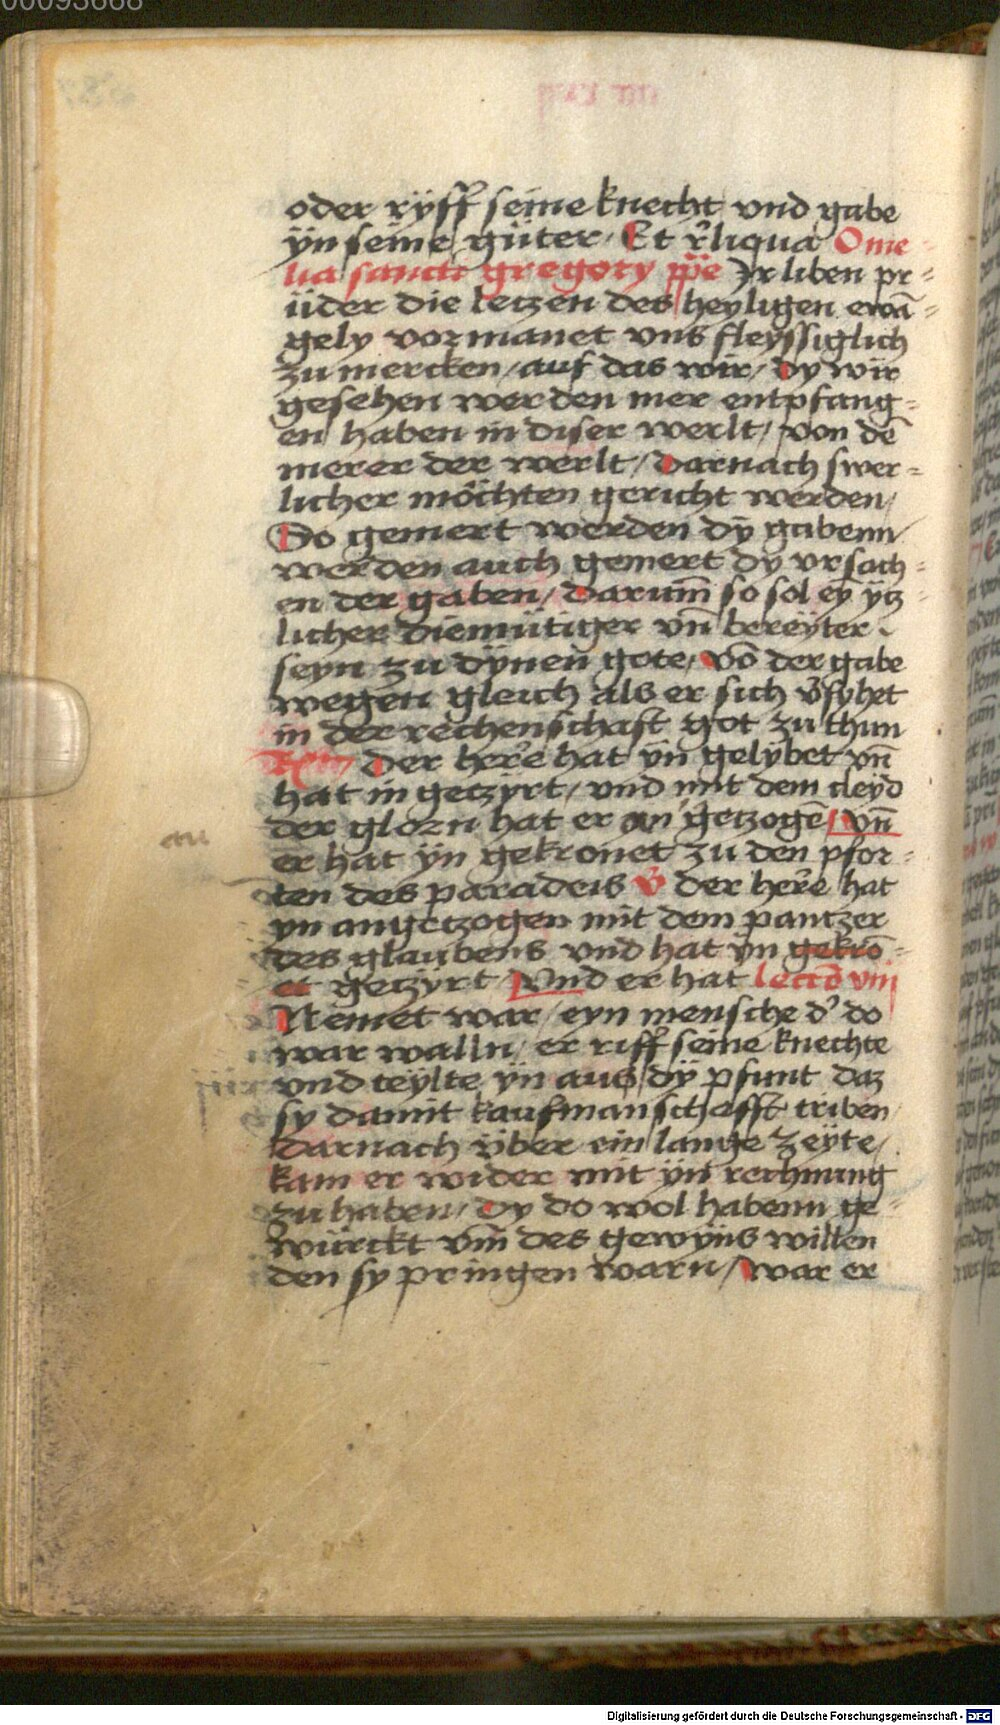 00093668
oder rÿff seine knecht vnd gabe
ÿn seine güter · Et rͤliqua Ome-
lia sancti gregory ppe Ir liben pr-
üder die letzen des heyligen ewā-
gely vormanet vns fleyssiglich
zu mercken / auf das wir / dy wir
gesehen werden mer entpfang-
en haben in diser werlt / von dē
merer der werlt / Darnach swer-
licher möchten gericht werden /
So gemert werden dÿ gabenn /
werden auch gemert dy vrsach-
en der gaben / Darum̄ so sol eȳ ÿtz
licher diemütiger vn̄ bereÿter
seyn zu dÿnen gote / vō der gabe
wegen gleich als er sich v̄syhet
in der rechenschaft got zu thun
Der herre hat yn gelÿbet vn̄
hat in getzyrt / vnd mit dem cleyd
der glorn hat er an getzogē Vn̄
au
er hat ÿn gekronet zu den pfor-
ten des paradeis v̄ der herre hat
yn angetzogen mit dem pantzer
des glaubens vnd hat ÿn gekrō-
et getzyrt Vnd er hat lectō viij
Nemet war / eyn mensche d' do
war walln / er riff seine knechte
vnd teÿlte ÿn aus / dÿ pfunt daz
sy damit kaufmanschafft triben /
darnach über ein lange zeÿte /
kam er wider mit ÿn rechnung
zu haben / dy do wol habenn ge-
würckt vm̄ des gewÿns willen
den sy pringen warn / war er
Digitalisierung gefördert durch die Deutsche Forschungsgemeinschaft - DFG